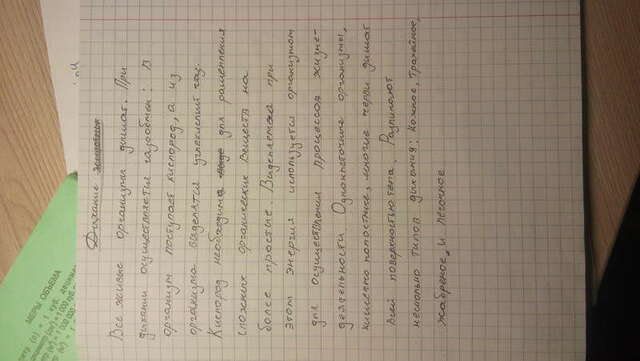 Дыхание
Все живые организмы дышат. При
дыхании осуществляется газообмен: в
организм поступает кислород, а из
организма выделятся углекислый газ.
Кислород необходим для расщепления
сложных органических веществ на
более простые. Выделяемая при
этом энергия используется организмом
для осуществления процессов жизне-
деятельности Одноклеточные организмы,
кишечнополостные, многие черви дышат
всей поверхностью тела. Различают
несколько типов дыхания: кожное, трахейное,
жаберное, и легочное
МЕРЫ ОБЪЕМА